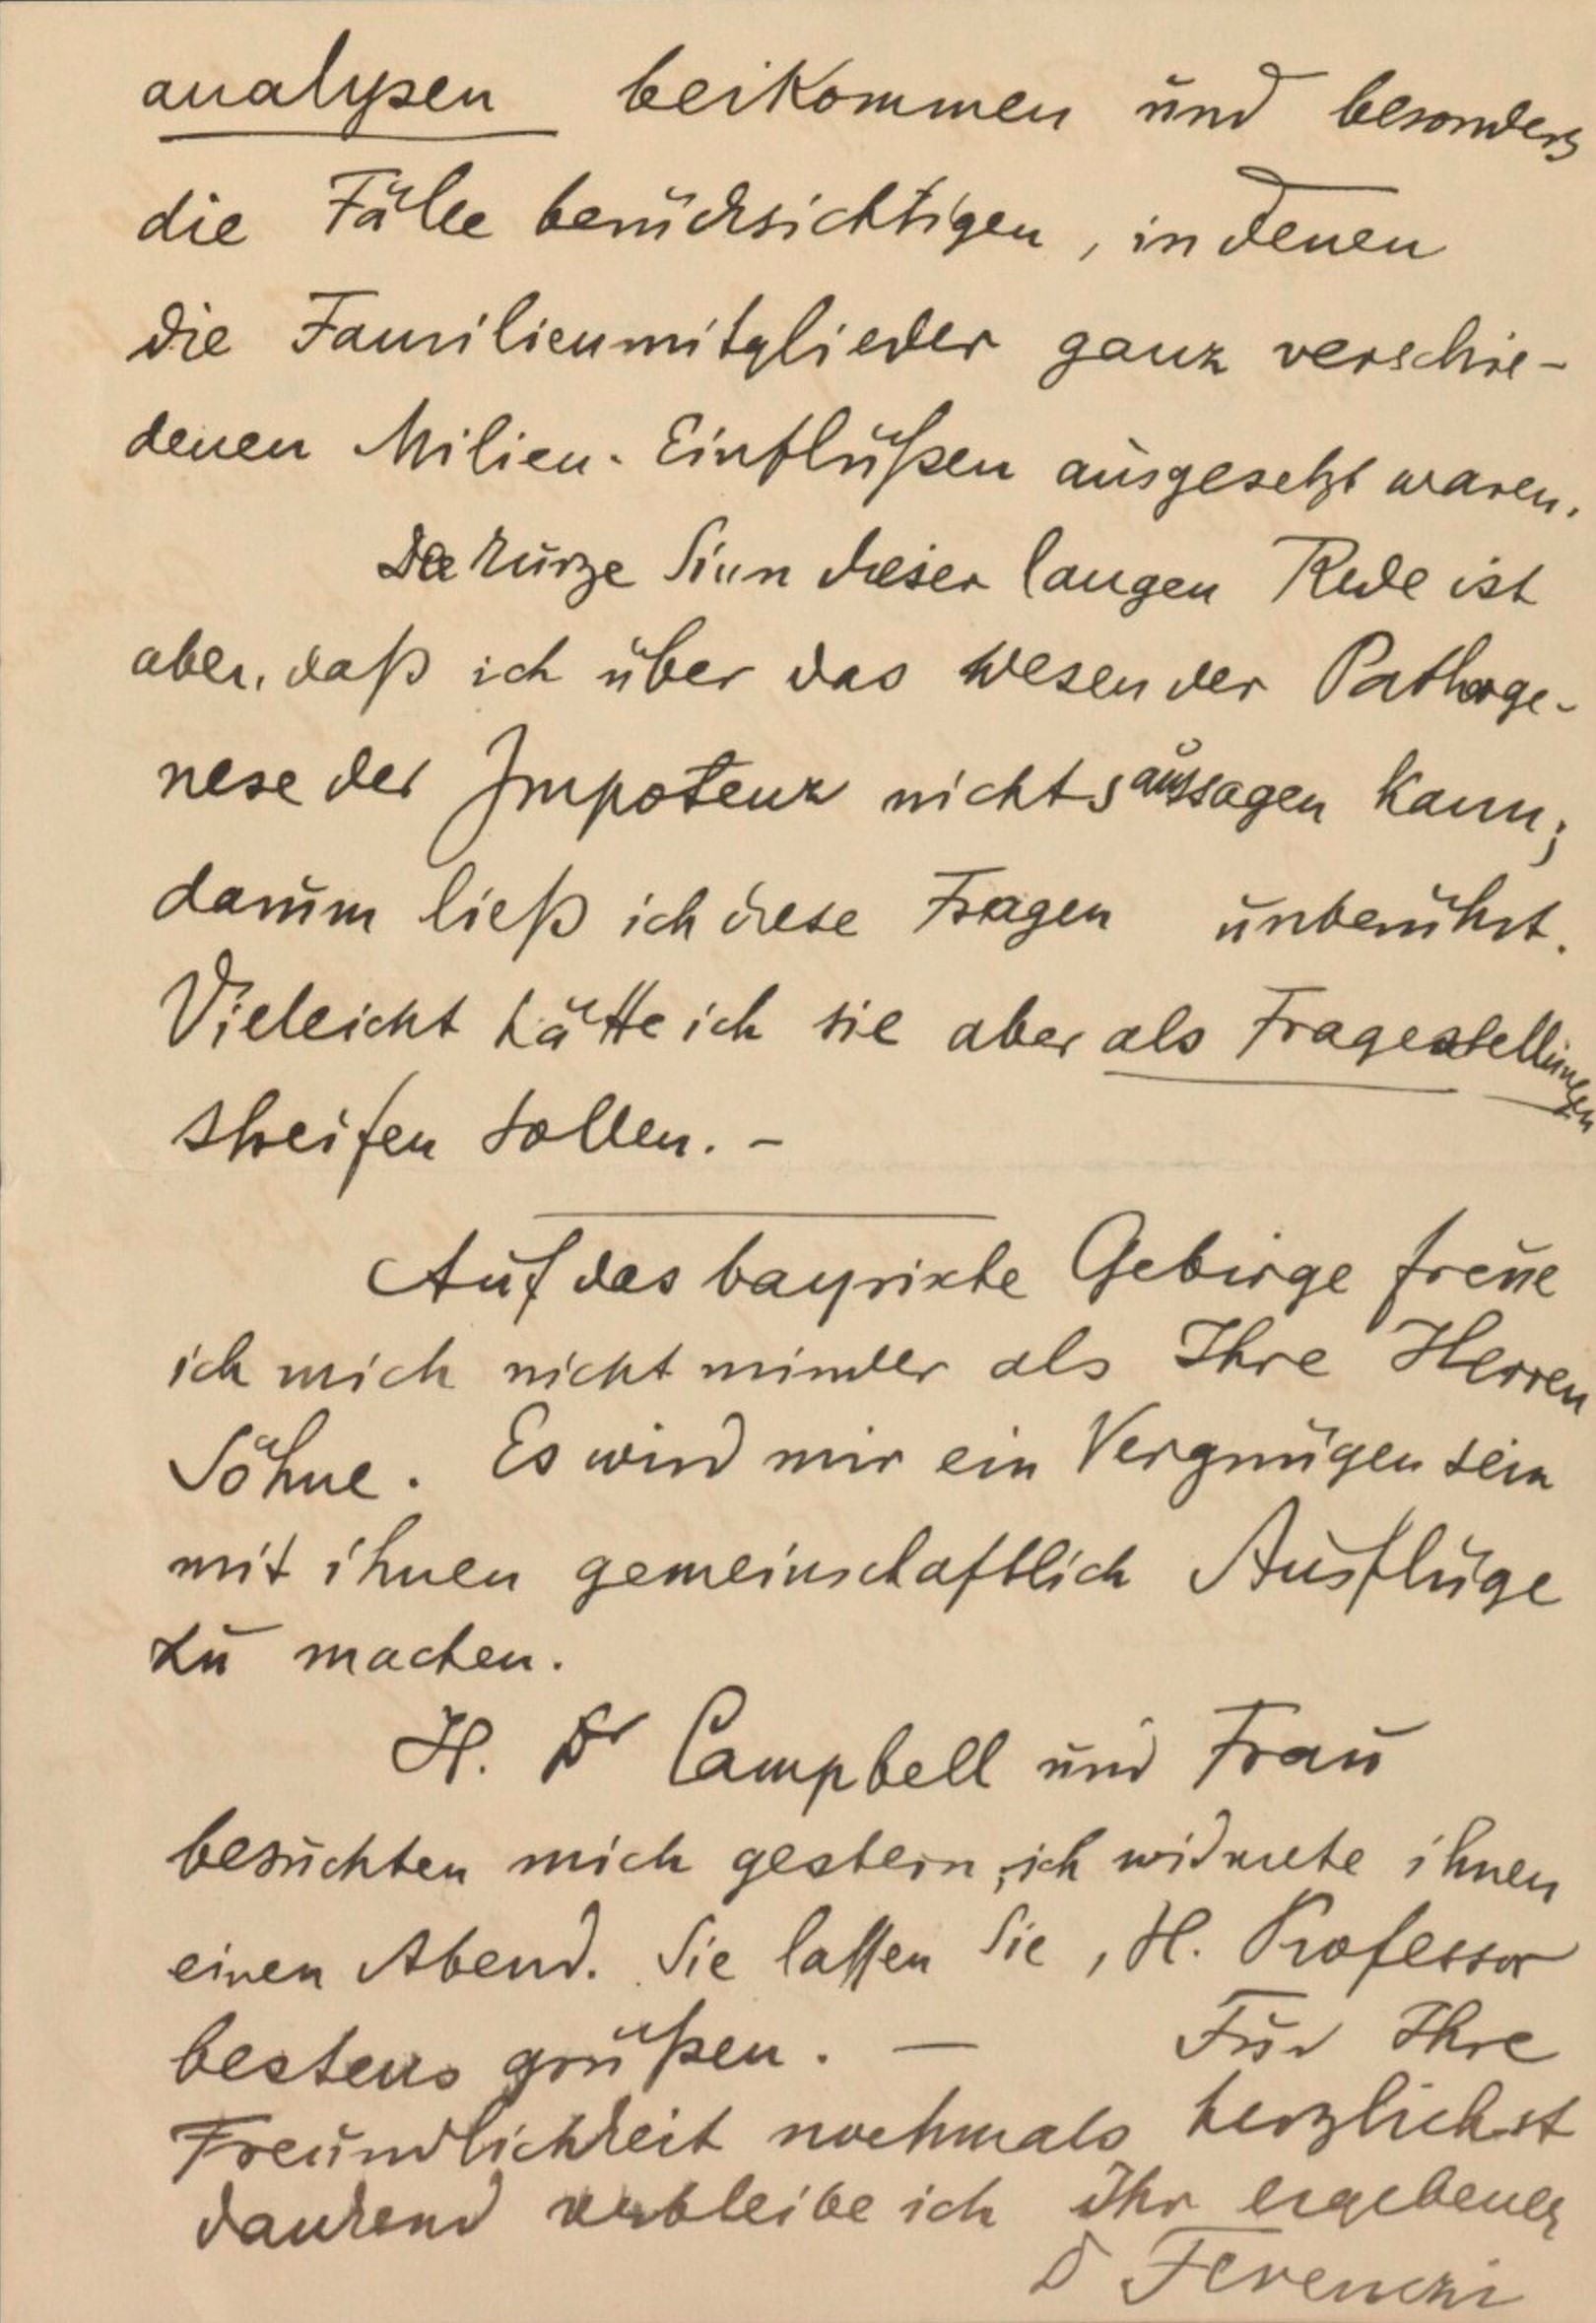 analysen beikommen und besonders
die Fälle berücksichtigen, in denen
die Familienmitglieder ganz verschie-
denen Milieu-Einflüßen ausgesetzt waren.
Der kurze Sinn dieser langen Rede ist
aber, daß ich über das Wesen der Pathoge-
nese der Impotenz nichts aussagen kann;
darum ließ ich diese Fragen unberührt.
Vieleicht hätte ich sie aber als Fragestellungen
streifen sollen. –
Auf das bayrische Gebirge freue
ich mich nicht minder als Ihre Herren
Söhne. Es wird mir ein Vergnügen sein
mit ihnen gemeinschaftlich Ausflüge
zu machen.
H. Dr Campbell und Frau
besuchten mich gestern, ich widmete ihnen
einen Abend. Sie lassen Sie, H. Professor
bestens grüßen. — Für Ihre
Freundlichkeit nochmals herzlichst
dankend verbleibe ich Ihr ergebener
Dr Ferenczi